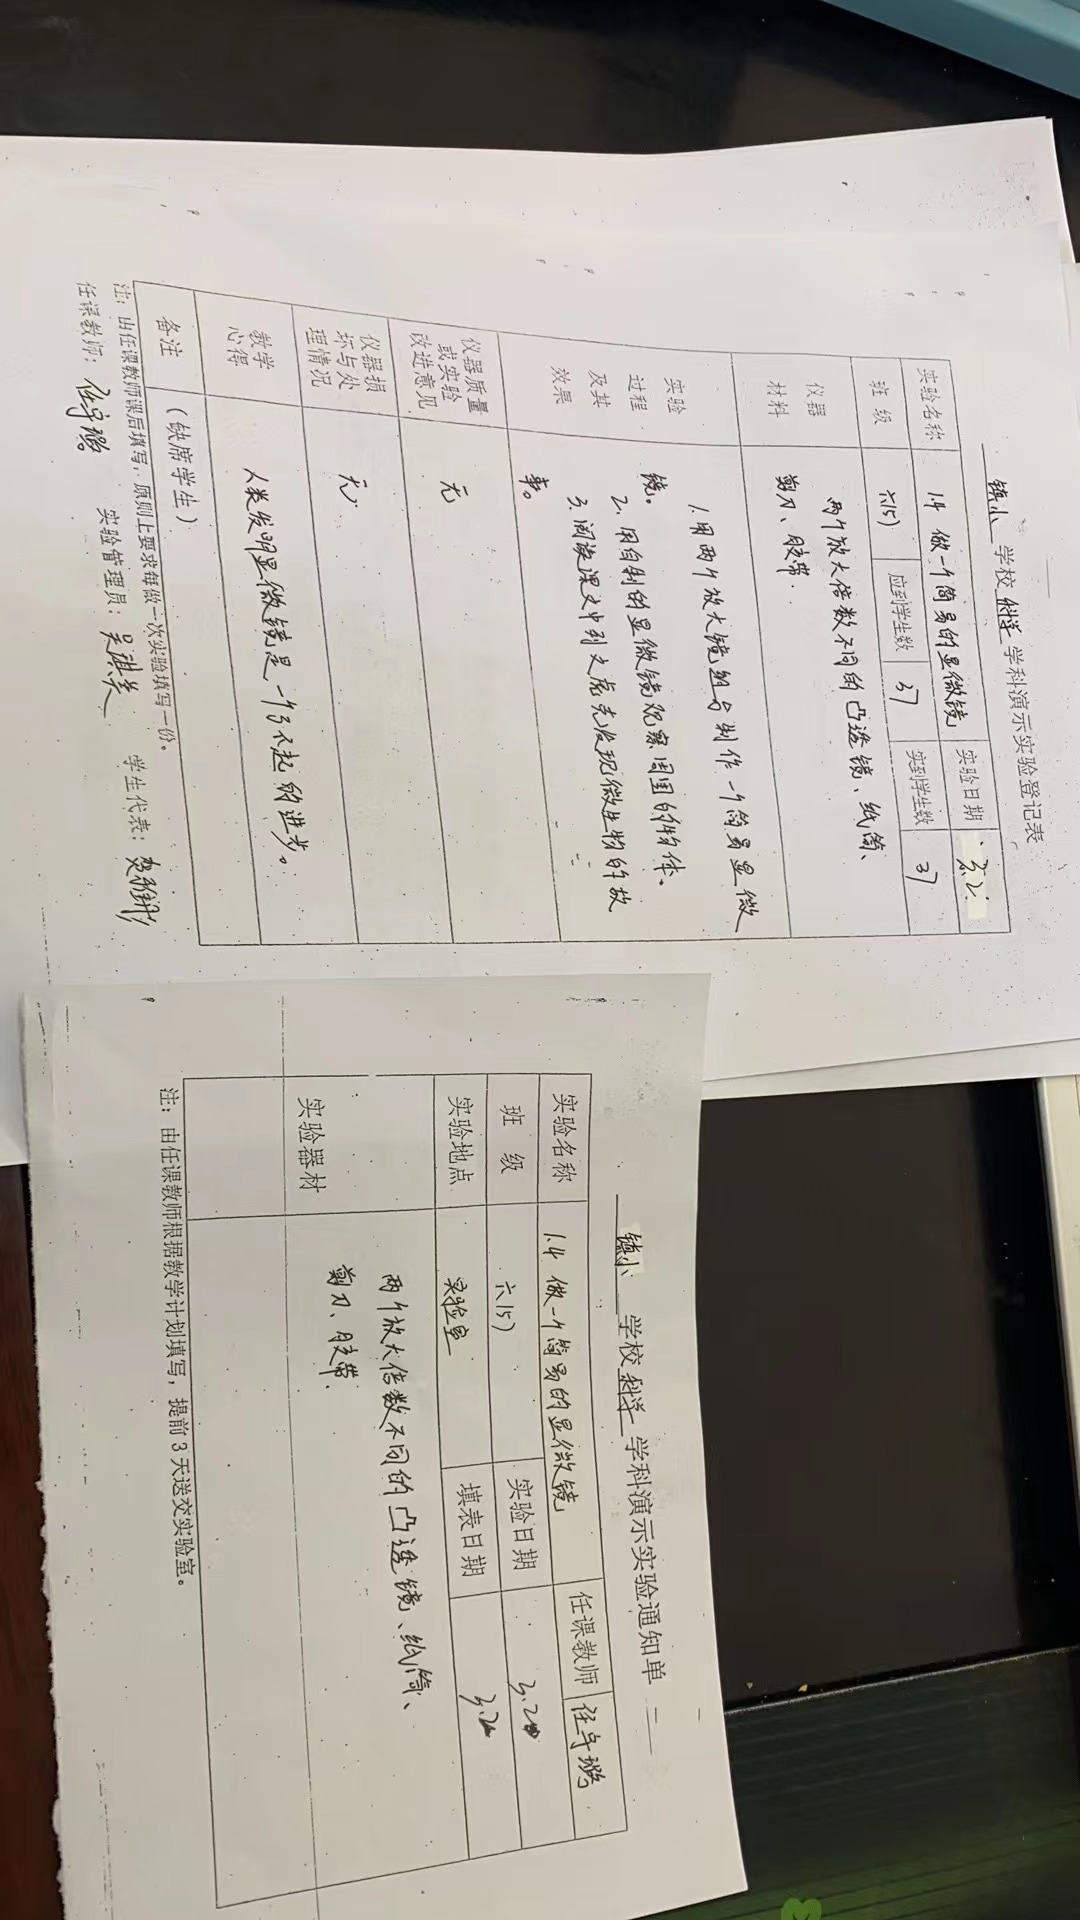 镇小 学校 科学 学科演示实验登记表
实验名称 1.4 做一个简易的显微镜 实验日期 3.2
班 级 六(5) 应到学生数 37 实到学生数 37
仪器 两个放大倍数不同的凸透镜、纸筒、
材料 剪刀、胶带.
实验
过程
及其
效果
1.用两个放大镜组合制作一个简易显微
镜。
2. 用自制的显微镜观察周围的物体。
3. 阅读课文中列文虎克发现微生物的故
事。
仪器质量
或实验
改进意见
无
仪器损
坏与处
理情况
无.
教学
心得
人类发明显微镜是一个了不起的进步。
备注 (缺席学生)
注：由任课教师课后填写，原则上要求每做一次实验填写一份。
任课教师： 实验管理员： 学生代表：
镇小 学校 科学 学科演示实验通知单
实验名称 1.4 做一个简易的显微镜 任课教师
班 级 六(5) 实验日期
实验地点 实验室 填表日期
实验器材
两个放大倍数不同的凸透镜、纸筒、
剪刀、胶带.
注：由任课教师根据教学计划填写，提前3天送交实验室。